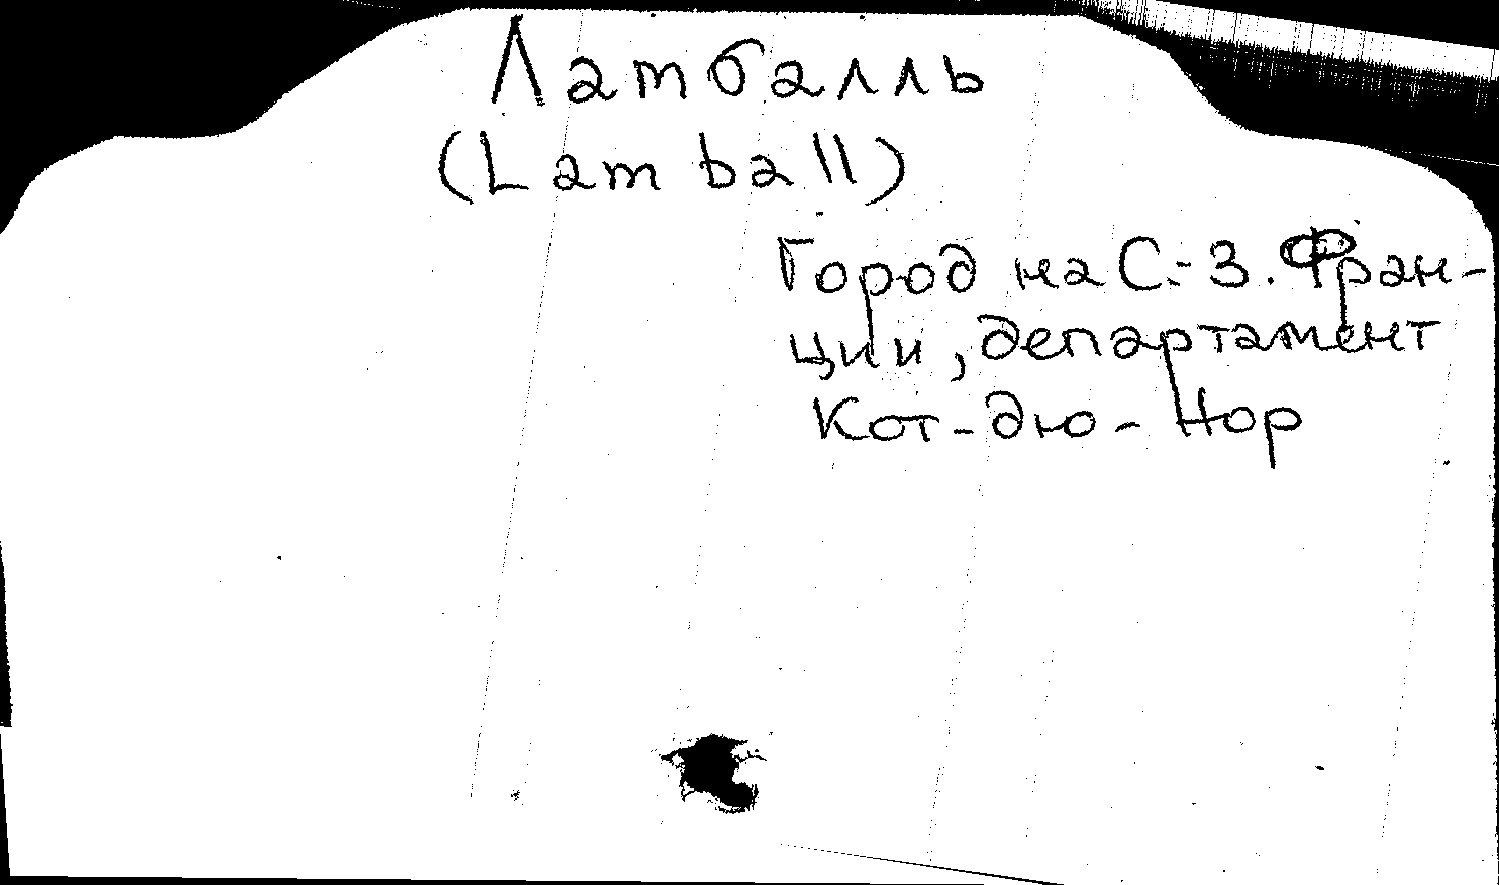 Ламбалль
(Lamball)
Город на С.-З. Фран-
ции, департамент
Кот-дю-Нор